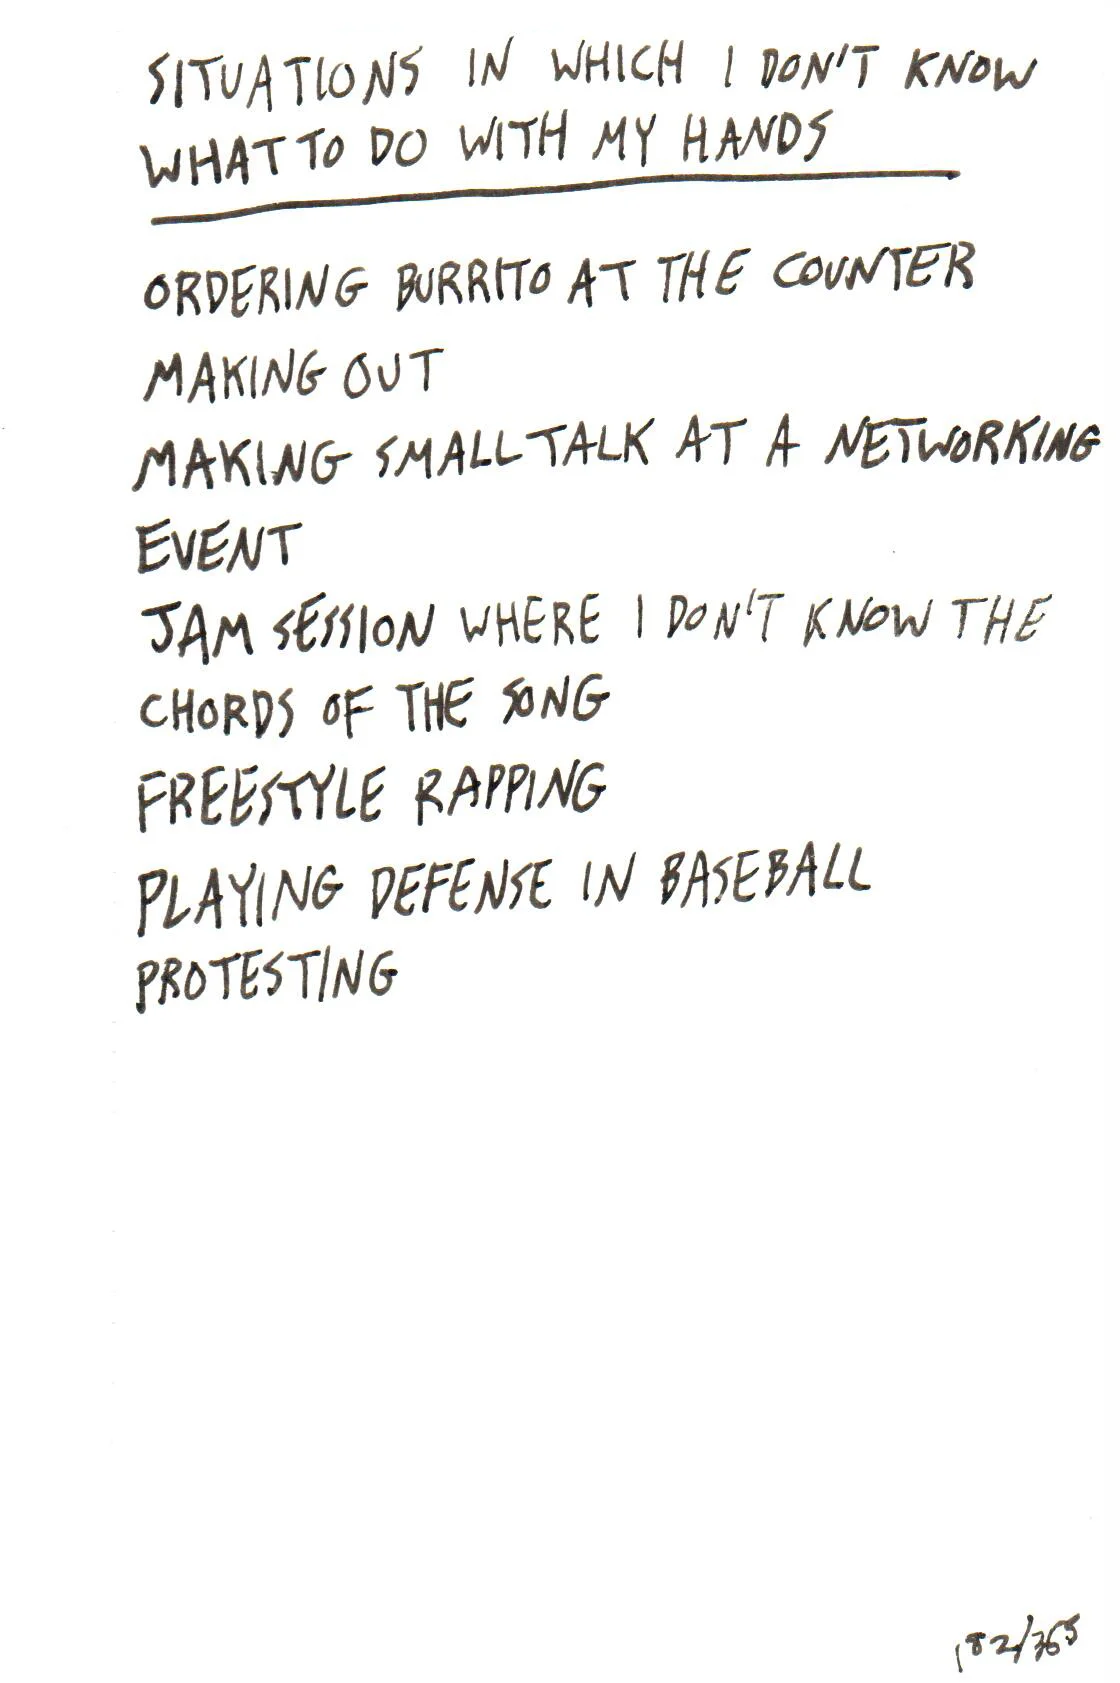 SITUATIONS IN WHICH I DON'T KNOW
WHAT TO DO WITH MY HANDS
ORDERING BURRITO AT THE COUNTER
MAKING OUT
MAKING SMALL TALK AT A NETWORKING
EVENT
JAM SESSION WHERE I DON'T KNOW THE
CHORDS OF THE SONG
FREESTYLE RAPPING
PLAYING DEFENSE IN BASEBALL
PROTESTING
182/365